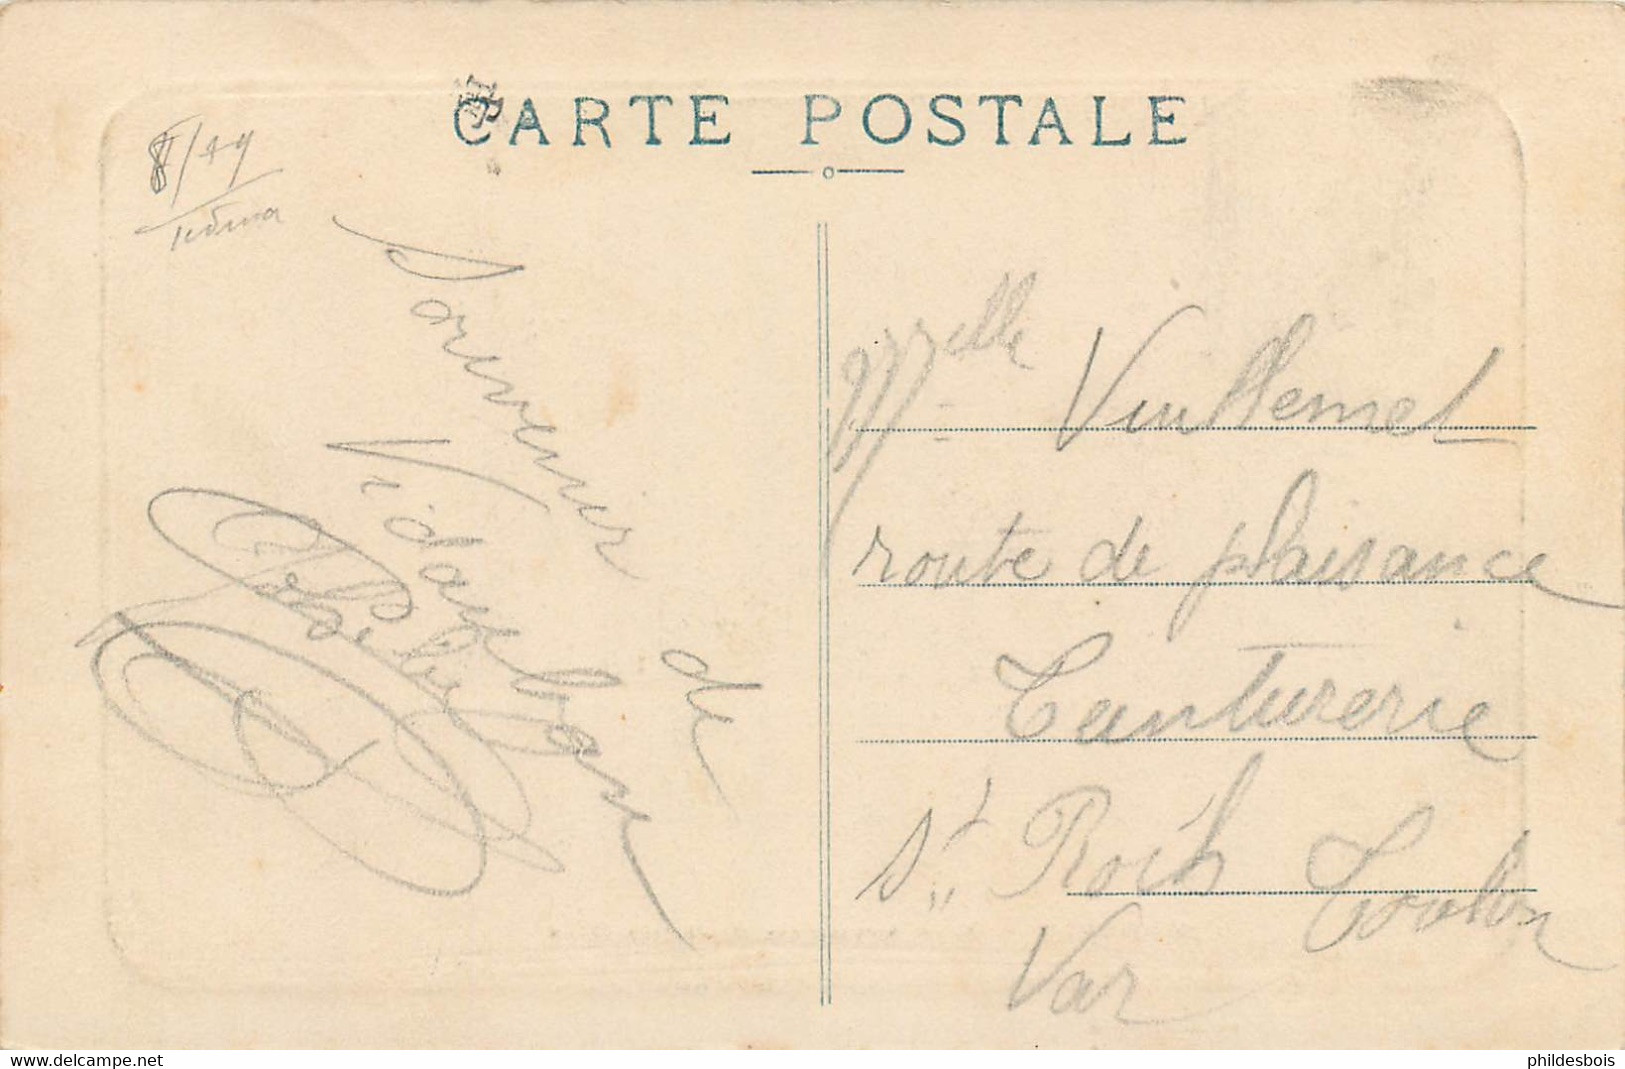 CARTE POSTALE
Souvenir de
Vidauban
Melle Vuillemet
route de plaisance
Tanturerie
St Roch Toulon
Var
www.delcampe.net
phildesbois